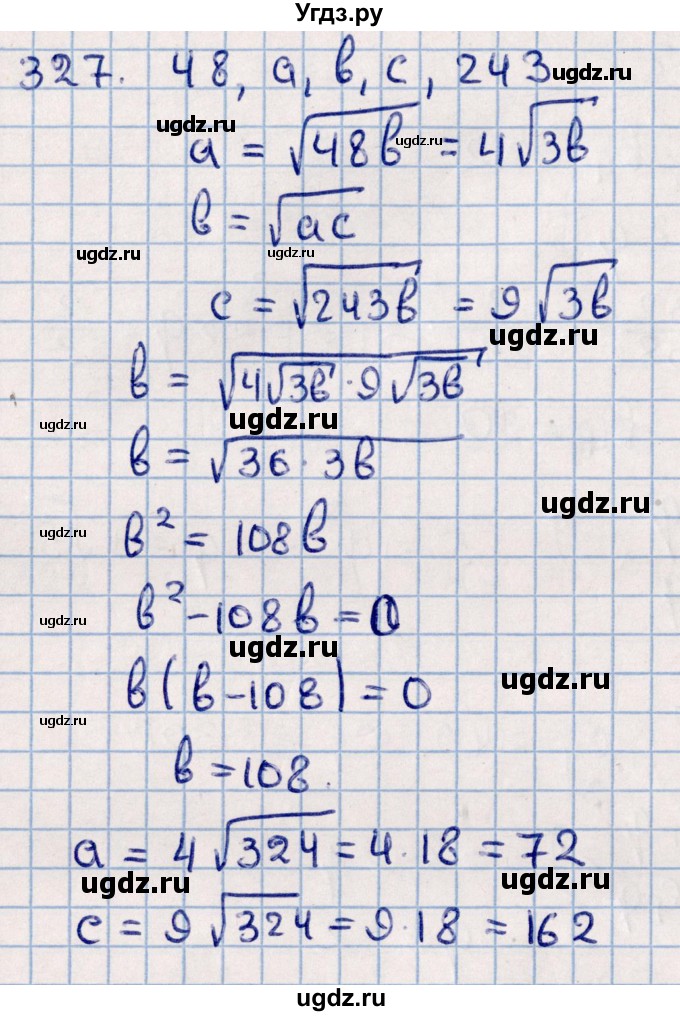 Угдз.ру
327. 48, а, в, с, 243
ugdz.ru
ugdz.ru
a = √48в = 4√3в
ugdz.ru
в = √ac
ugdz.ru
ugdz.ru
c = √243в = 9√3в
ugdz.ru
в = √4√3в · 9√3в
ugdz.ru
ugdz.ru
в = √36 · 3в
ugdz.ru
в² = 108в
ugdz.ru
в² - 108в = 0
ugdz.ru
ugdz.ru
в(в - 108) = 0
ugdz.ru
ugdz.ru
в = 108.
a = 4√324 = 4 · 18 = 72
ugdz.ru
ugdz.ru
c = 9√324 = 9 · 18 = 162
ugdz.ru